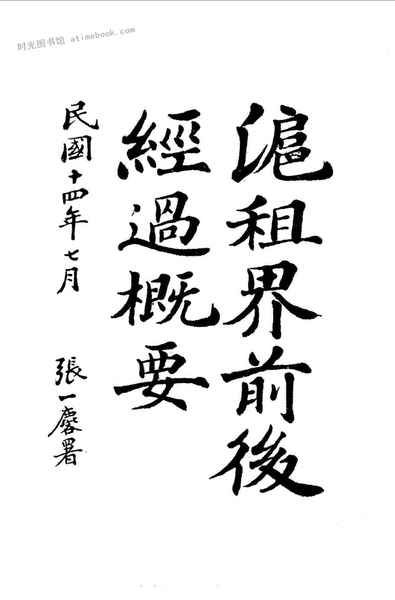 时光图书馆 atimebook.com
滬租界前後
經過概要
民國十四年七月
張一麐署